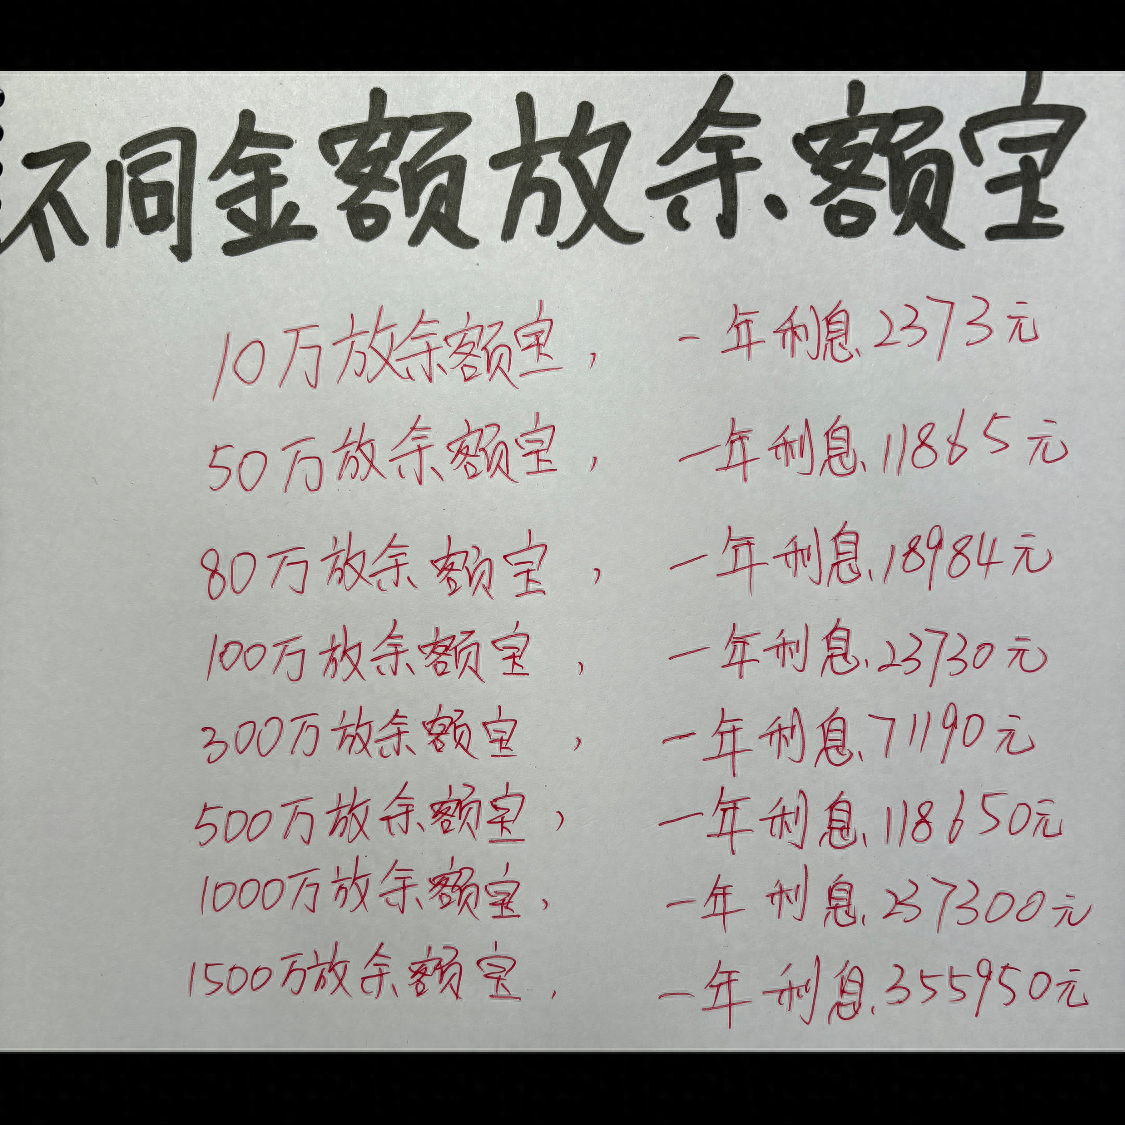 不同金额放余额宝
10万放余额宝, 一年利息2373元
50万放余额宝, 一年利息11865元
80万放余额宝, 一年利息18984元
100万放余额宝, 一年利息23730元
300万放余额宝, 一年利息71190元
500万放余额宝, 一年利息118650元
1000万放余额宝, 一年利息237300元
1500万放余额宝, 一年利息355950元